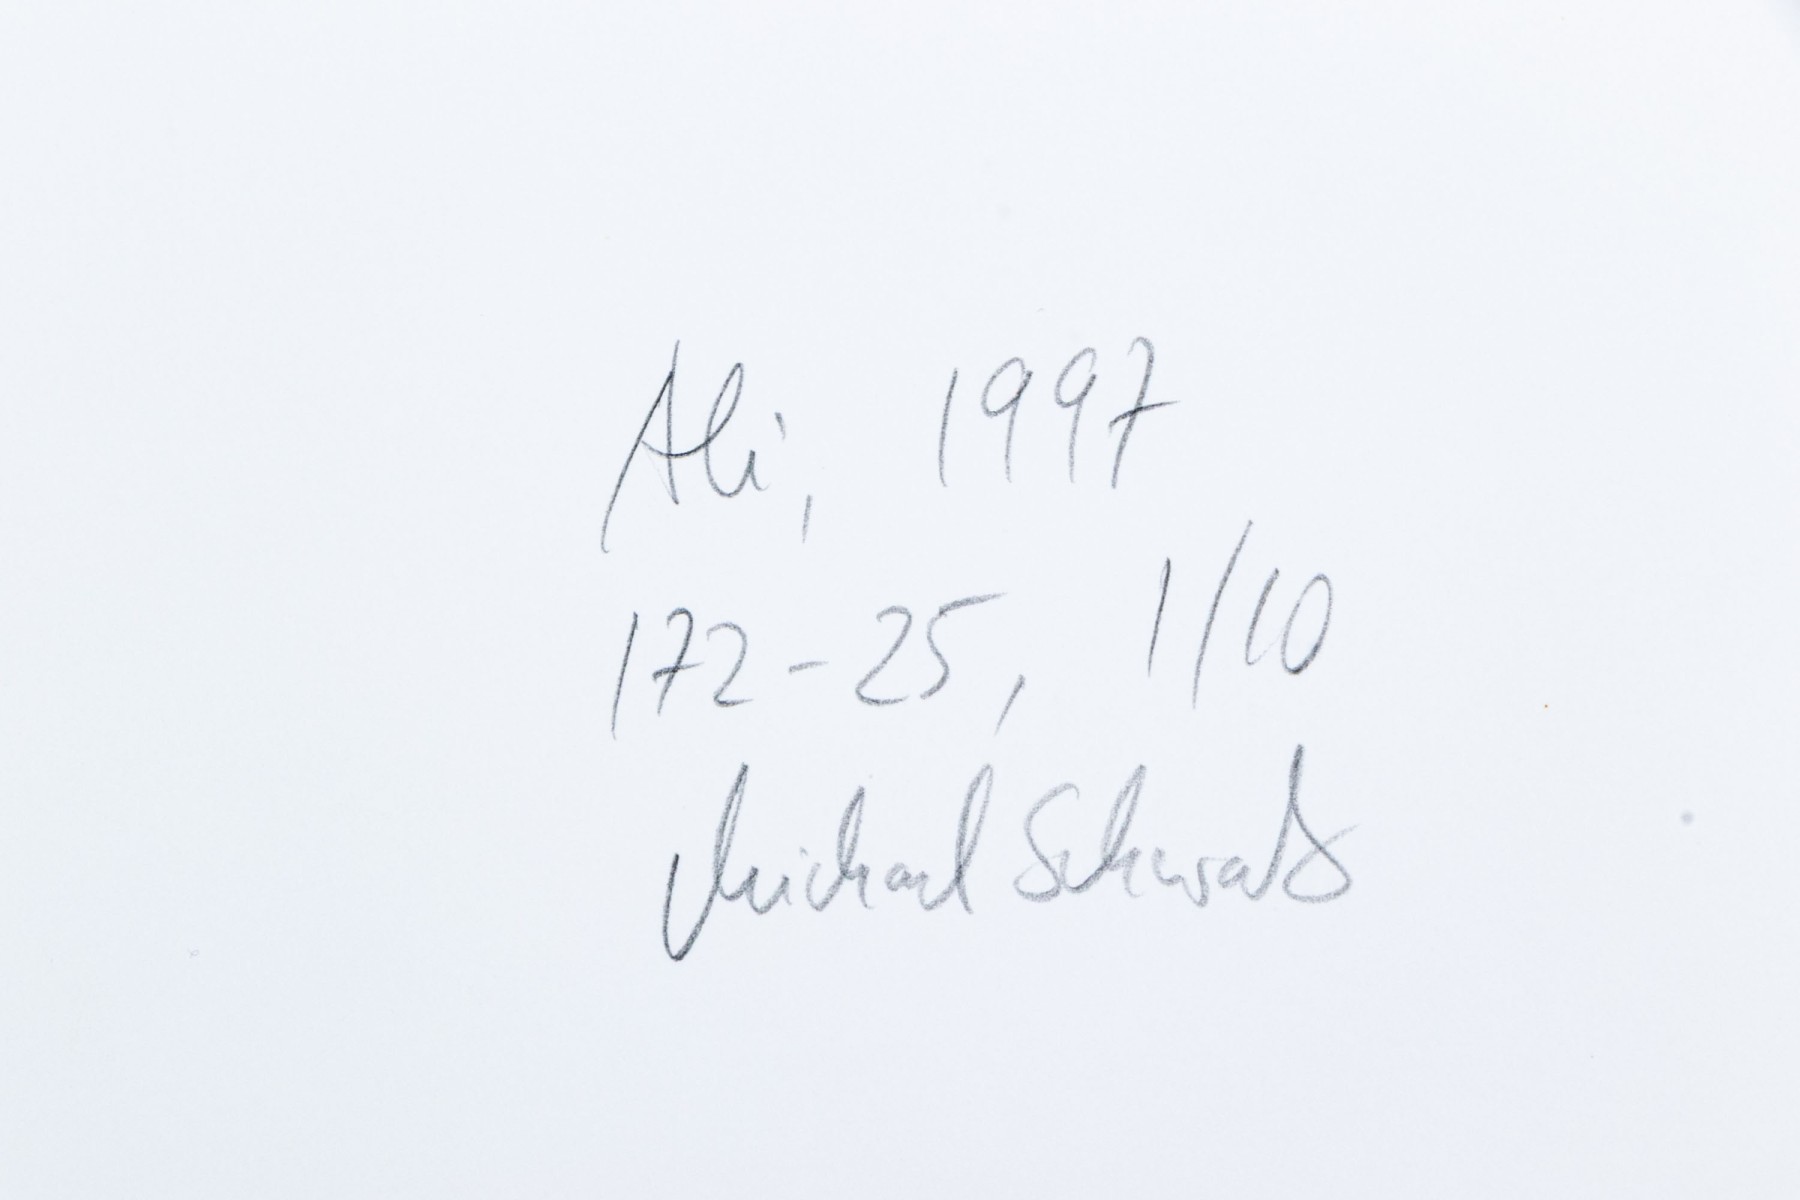 Ali, 1997
172-25, 1/10
Michael